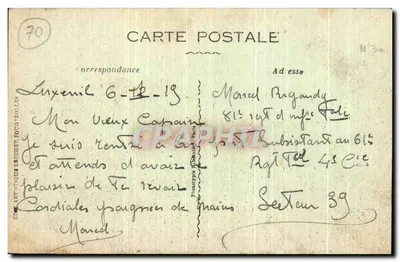 70
CARTE POSTALE
Correspondance
Adresse
Luxeuil 6-12-19
Mon Vieux Copain
Je suis rentré à
et attends d'avoir
plaisir de te revoir
Cordiales poignées de mains
Marcel
Marcel Rigaudy
81e rgt d'inf
subsistant au 61e
Rgt Tal 43 Cie
Secteur 39